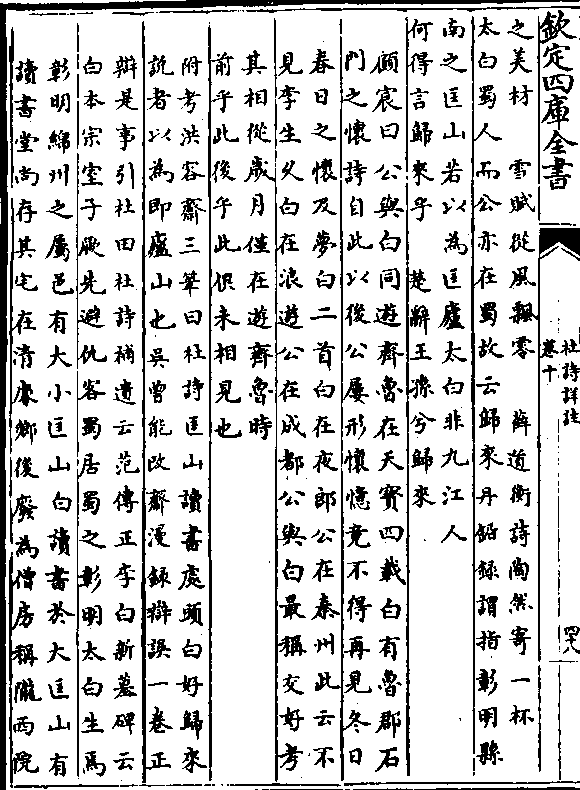 欽定四庫全書
杜詩詳註
卷十
四十八
之美材　雪賦從風飄零　薛道衡詩陶然寄一杯
太白蜀人而公亦在蜀故云歸來丹鉛錄謂指彰明縣
南之匡山若以為匡廬太白非九江人
何得言歸來乎　楚辭王孫兮歸來
顧宸曰公與白同遊齊魯在天寶四載白有魯郡石
門之懷詩自此以後公屢形懷憶竟不得再見冬日
春日之懷及夢白二首白在夜郎公在秦州此云不
見李生久白在浪遊公在成都公與白最稱交好考
其相從歲月僅在遊齊魯時
前乎此後乎此俱未相見也
附考洪容齋三筆曰杜詩匡山讀書處頭白好歸來
說者以為即廬山也吳曾能改齋漫錄辯誤一卷正
辯是事引杜田杜詩補遺云范傳正李白新墓碑云
白本宗室子厥先避仇客蜀居蜀之彰明太白生焉
彰明綿州之屬邑有大小匡山白讀書於大匡山有
讀書堂尚存其宅在清廉鄉後廢為僧房稱隴西院